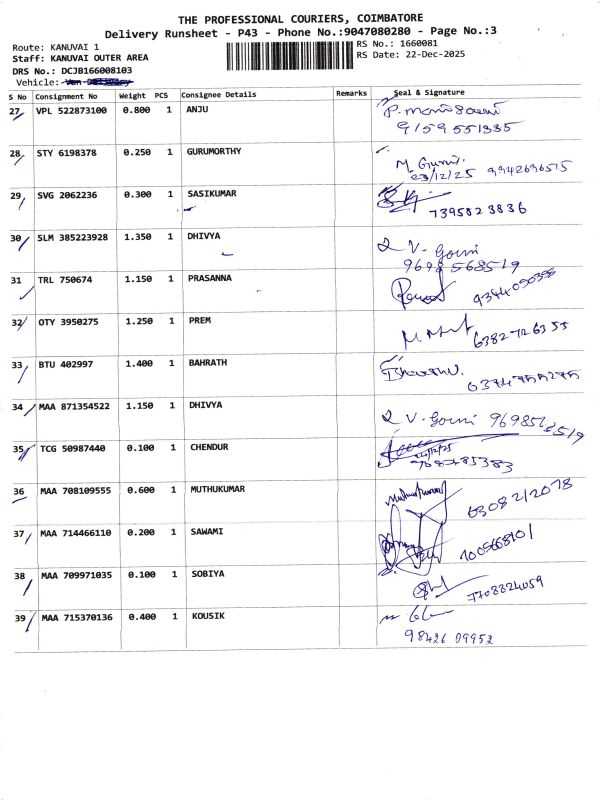 THE PROFESSIONAL COURIERS, COIMBATORE
Delivery Runsheet - P43 - Phone No.:9047080280 - Page No.:3
Route: KANUVAI 1 RS No.: 1660081
Staff: KANUVAI OUTER AREA RS Date: 22-Dec-2025
DRS No.: DCJB166008103
Vehicle:
S No Consignment No Weight PCS Consignee Details Remarks Seal & Signature
27 VPL 522873100 0.800 1 ANJU
9159551335
28 STY 6198378 0.250 1 GURUMORTHY M. Gurus.
23/12/25
29 SVG 2062236 0.300 1 SASIKUMAR
7395823836
30 SLM 385223928 1.350 1 DHIVYA V. Gowri
9698568519
31 TRL 750674 1.150 1 PRASANNA
32 OTY 3950275 1.250 1 PREM 6382726355
33 BTU 402997 1.400 1 BAHRATH
34 MAA 871354522 1.150 1 DHIVYA V. Gowri
35 TCG 50987440 0.100 1 CHENDUR
36 MAA 708109555 0.600 1 MUTHUKUMAR
37 MAA 714466110 0.200 1 SAWAMI
38 MAA 709971035 0.100 1 SOBIYA 7708824059
39 MAA 715370136 0.400 1 KOUSIK
98426 09952